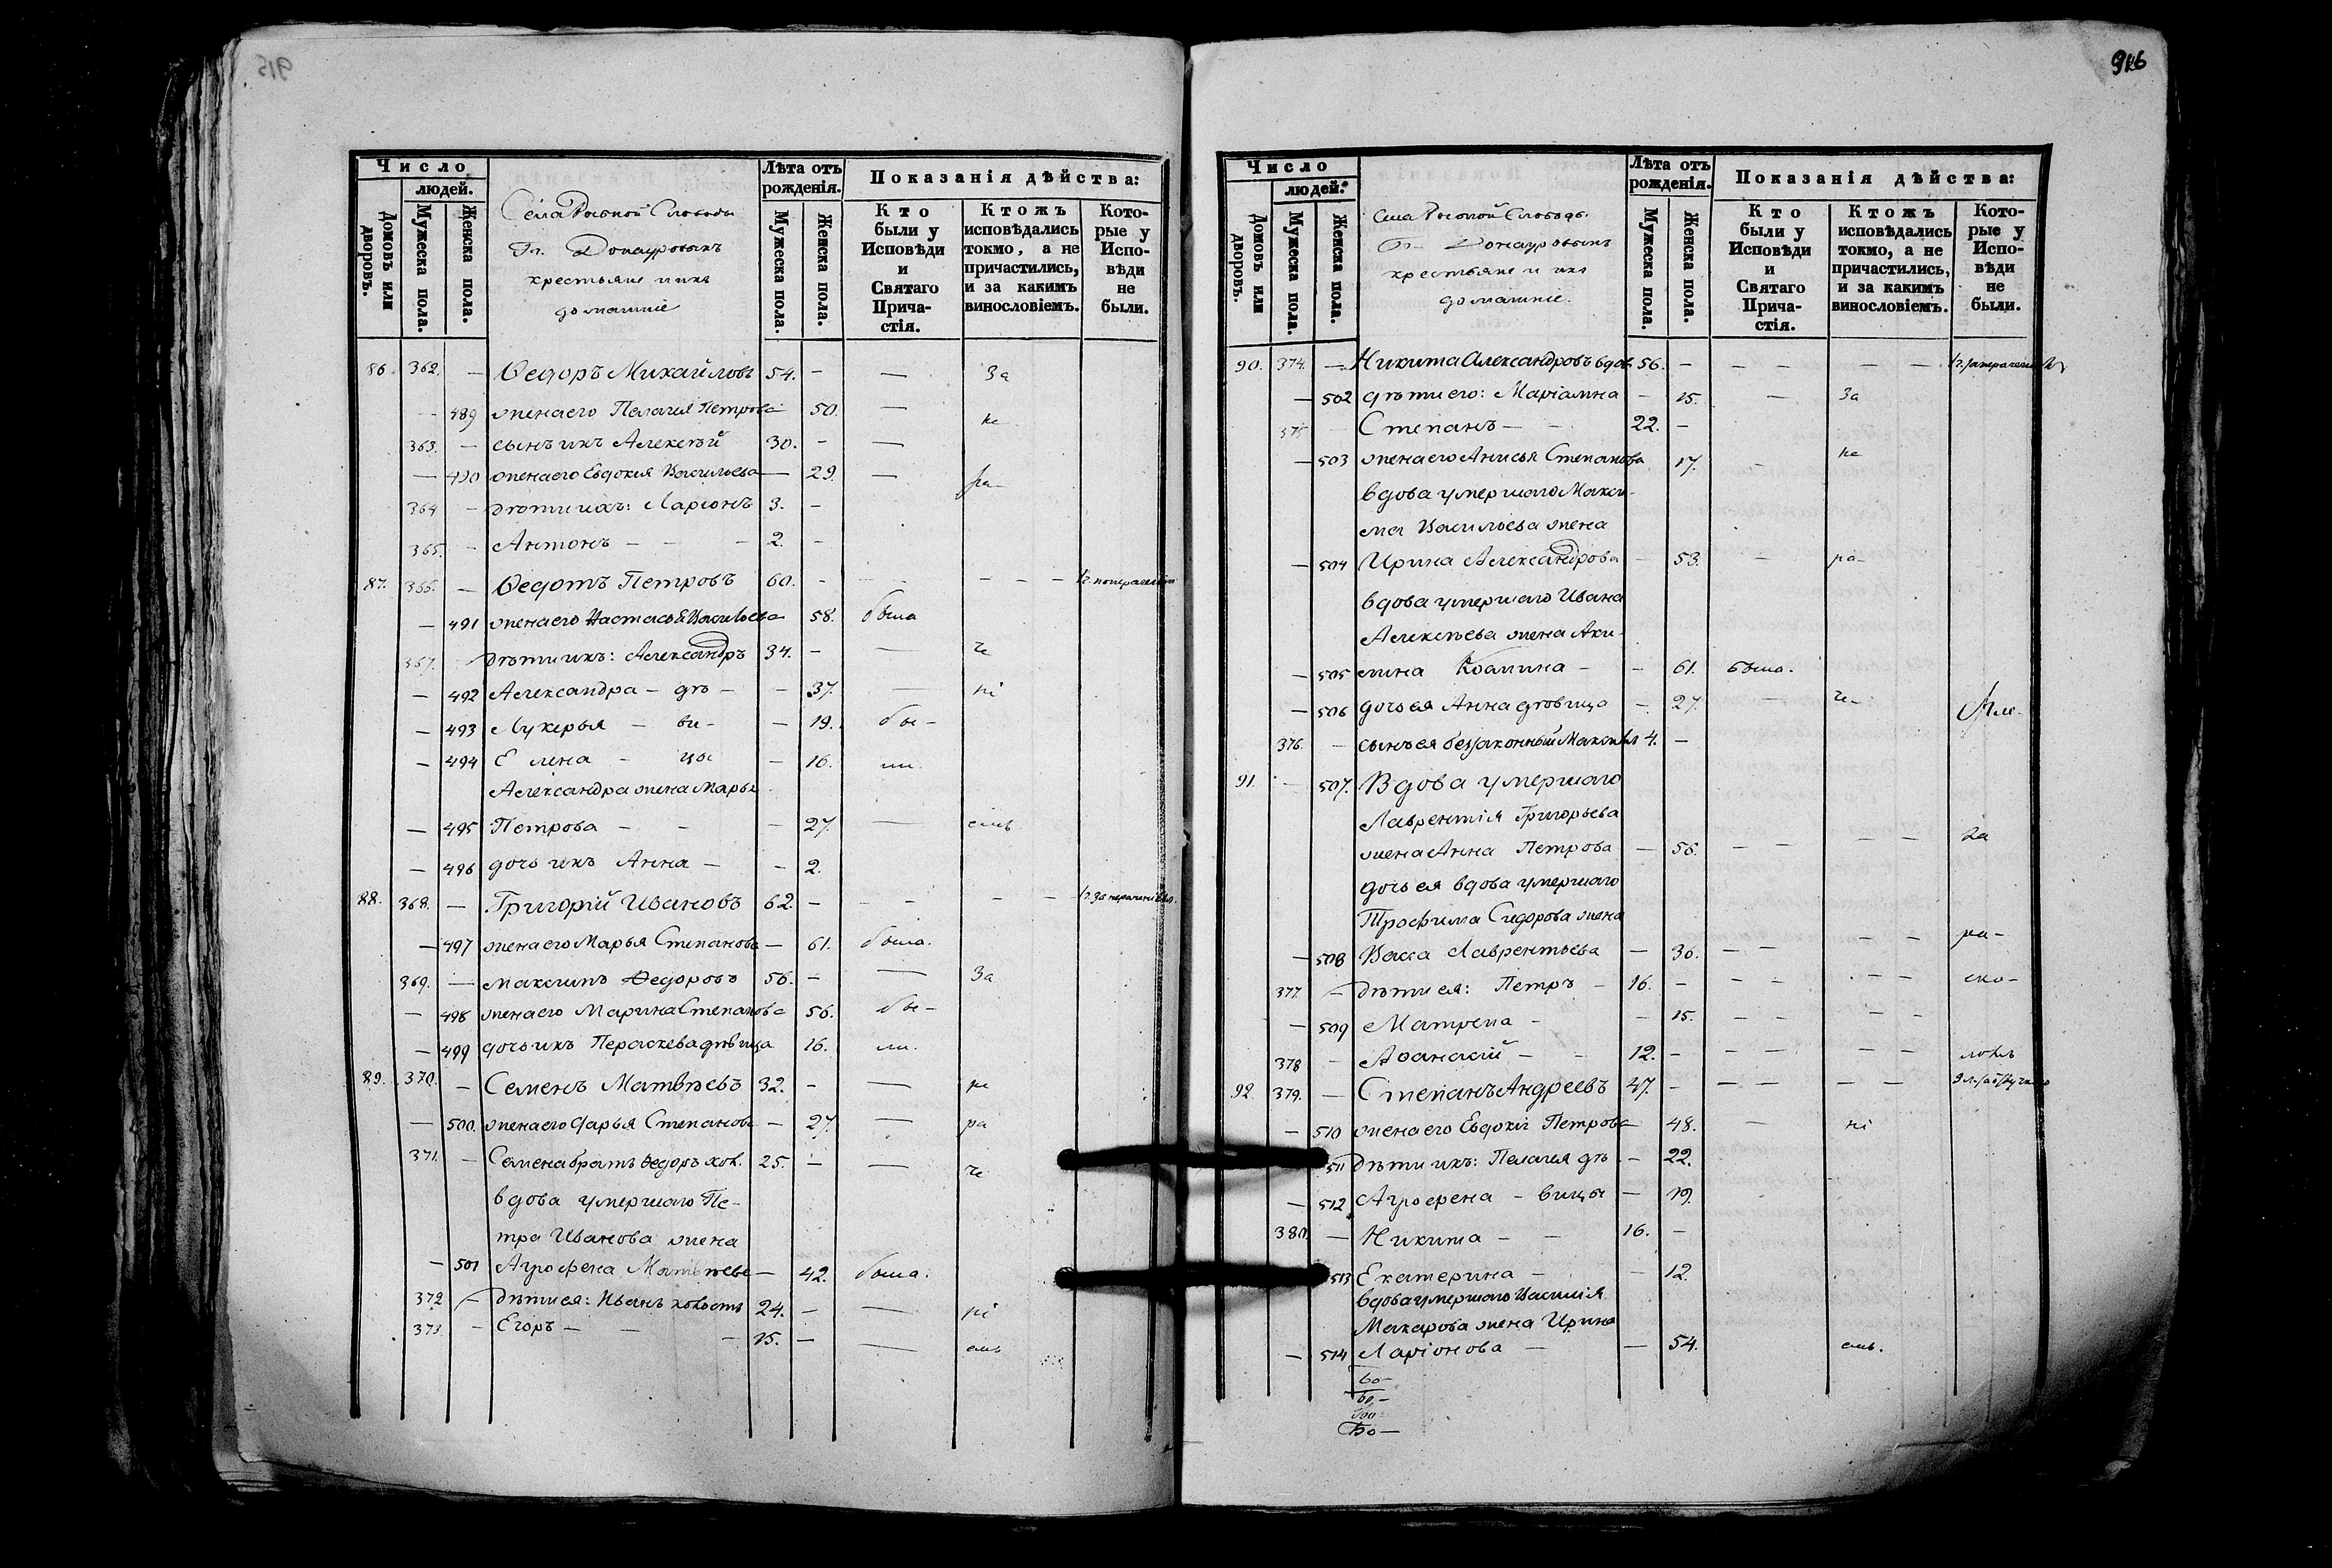 915
Число
людей.
Лѣта отъ рожденія.
Показанія дѣйства:
Домовъ или дворовъ.
Мужеска пола.
Женска пола.
Села Рыбной Слободы
Гг. Донауровыхъ
крестьяне и ихъ
домашніе
Мужеска пола.
Женска пола.
Кто были у Исповѣди и Святаго Прича-стія.
Ктожъ исповѣдались токмо, а не причастились, и за какимъ винословіемъ.
Кото-рые у Испо-вѣди не были.
86. 362. — Ѳедоръ Михайловъ 54. — — За
— 489 жена его Пелагея Петрова 50. — не
363. — сынъ ихъ Алексѣй 30. — —
— 490 жена его Евдокия Васильева — 29. — ра—
364 — дѣти ихъ: Ларіонъ 3. —
365. — Антонъ — — 2. —
87. 366. — Ѳедотъ Петровъ 60. — — — —
— 491 жена его Настасья Васильева 58. была
367. дѣти ихъ: Александръ 34. — — че
— 492 Александра — дѣ — — 37. — ні
— 493 Лукерья — ви — — 19. бы—
— 494 Елена — цы — 16. ли.
Александра жена Марья
— 495 Петрова — — — 27. — емъ
— 496 дочь ихъ Анна — — 2.
88. 368. — Григорій Ивановъ 62. — — — —
— 497 жена его Марья Степанова — 61. была.
369. — Максимъ Ѳедоровъ 56. — — За
— 498 жена его Марина Степанова 56. бы—
— 499 дочь ихъ Пераскева дѣвица 16. ли.
89. 370. — Семенъ Матвѣевъ 32. — — не
— 500. жена его Дарья Степанова — 27. — ра
371. — Семена братъ Ѳедоръ хол. 25. — — че
вдова умершаго Пе-
тра Иванова жена
— 501 Агрофена Матвѣева — 42. была.
372 — дѣти ея: Иванъ холостъ 24. — — ні
373. — Егоръ — — — 15. — — емъ
916
Число
людей.
Лѣта отъ рожденія.
Показанія дѣйства:
Домовъ или дворовъ.
Мужеска пола.
Женска пола.
Села Рыбной Слободы
Гг. Донауровыхъ
крестьяне и ихъ
домашніе.
Мужеска пола.
Женска пола.
Кто были у Исповѣди и Святаго Прича-стія.
Ктожъ исповѣдались токмо, а не причастились, и за какимъ винословіемъ.
Кото-рые у Испо-вѣди не были.
90. 374. — Никита Александровъ вдов. 56. — — — —
— 502 дѣти его: Маріамна — 15. — За
375 Степанъ — — 22. —
— 503 жена его Анисья Степанова 17. — не
вдова умершаго Макси-
ма Васильева жена
— 504 Ирина Александрова — 53. — ра—
вдова умершаго Ивана
Алексѣева жена Аку-
— 505 лина — — 61. была.
— 506 дочь ея Анна дѣвица — 27. — че—
376. — сынъ ея беззаконный Максимъ 4. —
91. — 507. Вдова умершаго
Лаврентія Григорьева
жена Анна Петрова — 56. — — — —
дочь ея вдова умершаго
Трофима Сидорова жена
— 508 Васса Лаврентьева — 36. — — — — ра—
377. — дѣти ея: Петръ — 16. — — — — — ско—
— 509 Матрена — — 15. — — — —
378 — Аѳанасій — — 12. — — — — — ломъ
92. 379. — Степанъ Андреевъ 47. — — — — —
— 510 жена его Евдокія Петрова 48. — ні
511 дѣти ихъ: Пелагея дѣ — 22.
— 512 Агрофена — вицы — 19.
380. — Никита — — 16. —
513 Екатерина — — 12.
вдова умершаго Василія
Макарова жена Ирина
— 514 Ларіонова — — 54. емъ.